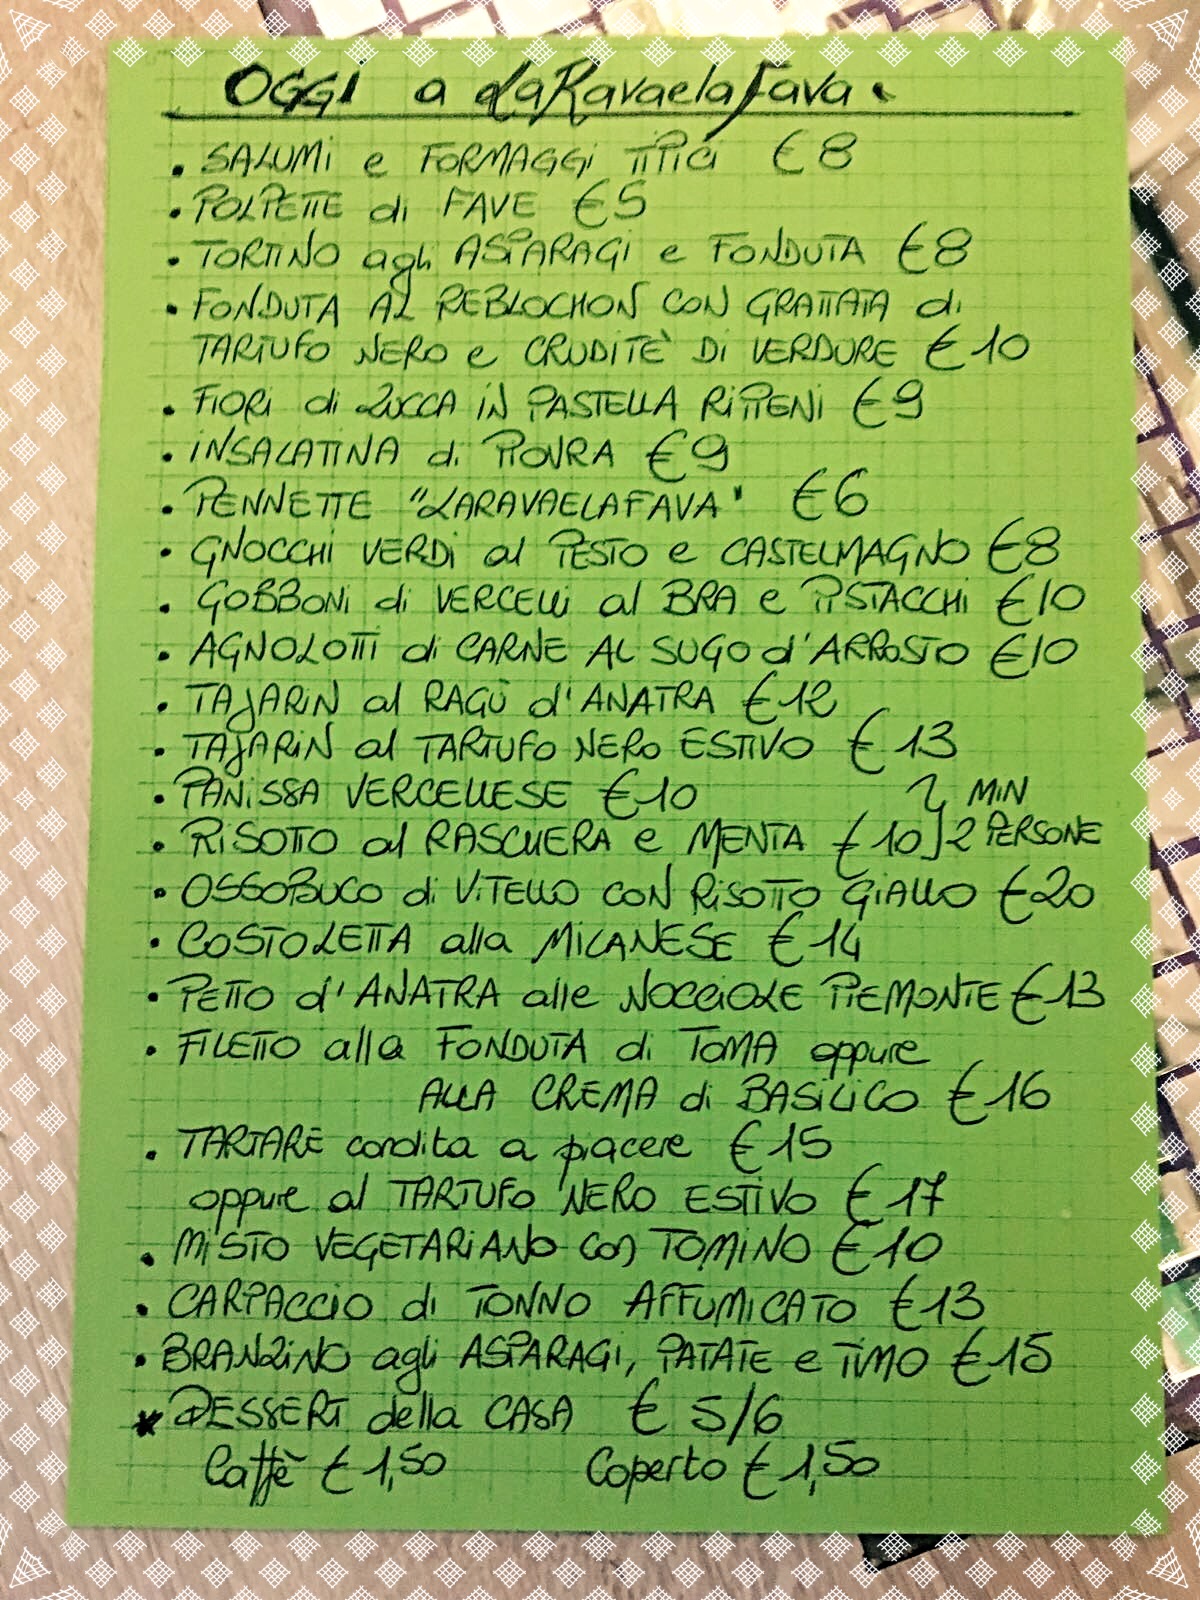 OGGI a LaRavaelaFava.
• SALUMI e FORMAGGI TIPICI €8
• POLPETTE di FAVE €5
• TORTINO agli ASPARAGI e FONDUTA €8
• FONDUTA AL REBLOCHON CON GRATTATA di
TARTUFO NERO e CRUDITÈ DI VERDURE €10
• FIORI di ZUCCA IN PASTELLA RIPIENI €9
• INSALATINA di PIOVRA €9
• PENNETTE "LARAVAELAFAVA" €6
• GNOCCHI VERDI al PESTO e CASTELMAGNO €8
• GOBBONI di VERCELLI al BRA e PISTACCHI €10
• AGNOLOTTI di CARNE AL SUGO d'ARROSTO €10
• TAJARIN al RAGÙ d'ANATRA €12
• TAJARIN al TARTUFO NERO ESTIVO €13
• PANISSA VERCELLESE €10 MIN
• RISOTTO al RASCHERA e MENTA €10 2 PERSONE
• OSSOBUCO di VITELLO CON RISOTTO GIALLO €20
• COSTOLETTA alla MILANESE €14
• PETTO d'ANATRA alle NOCCIOLE PIEMONTE €13
• FILETTO alla FONDUTA di TOMA oppure
ALLA CREMA di BASILICO €16
• TARTARE condita a piacere €15
oppure al TARTUFO NERO ESTIVO €17
• MISTO VEGETARIANO con TOMINO €10
• CARPACCIO di TONNO AFFUMICATO €13
• BRANZINO agli ASPARAGI, PATATE e TIMO €15
* DESSERT della CASA € 5/6
Caffè €1,50 Coperto €1,50